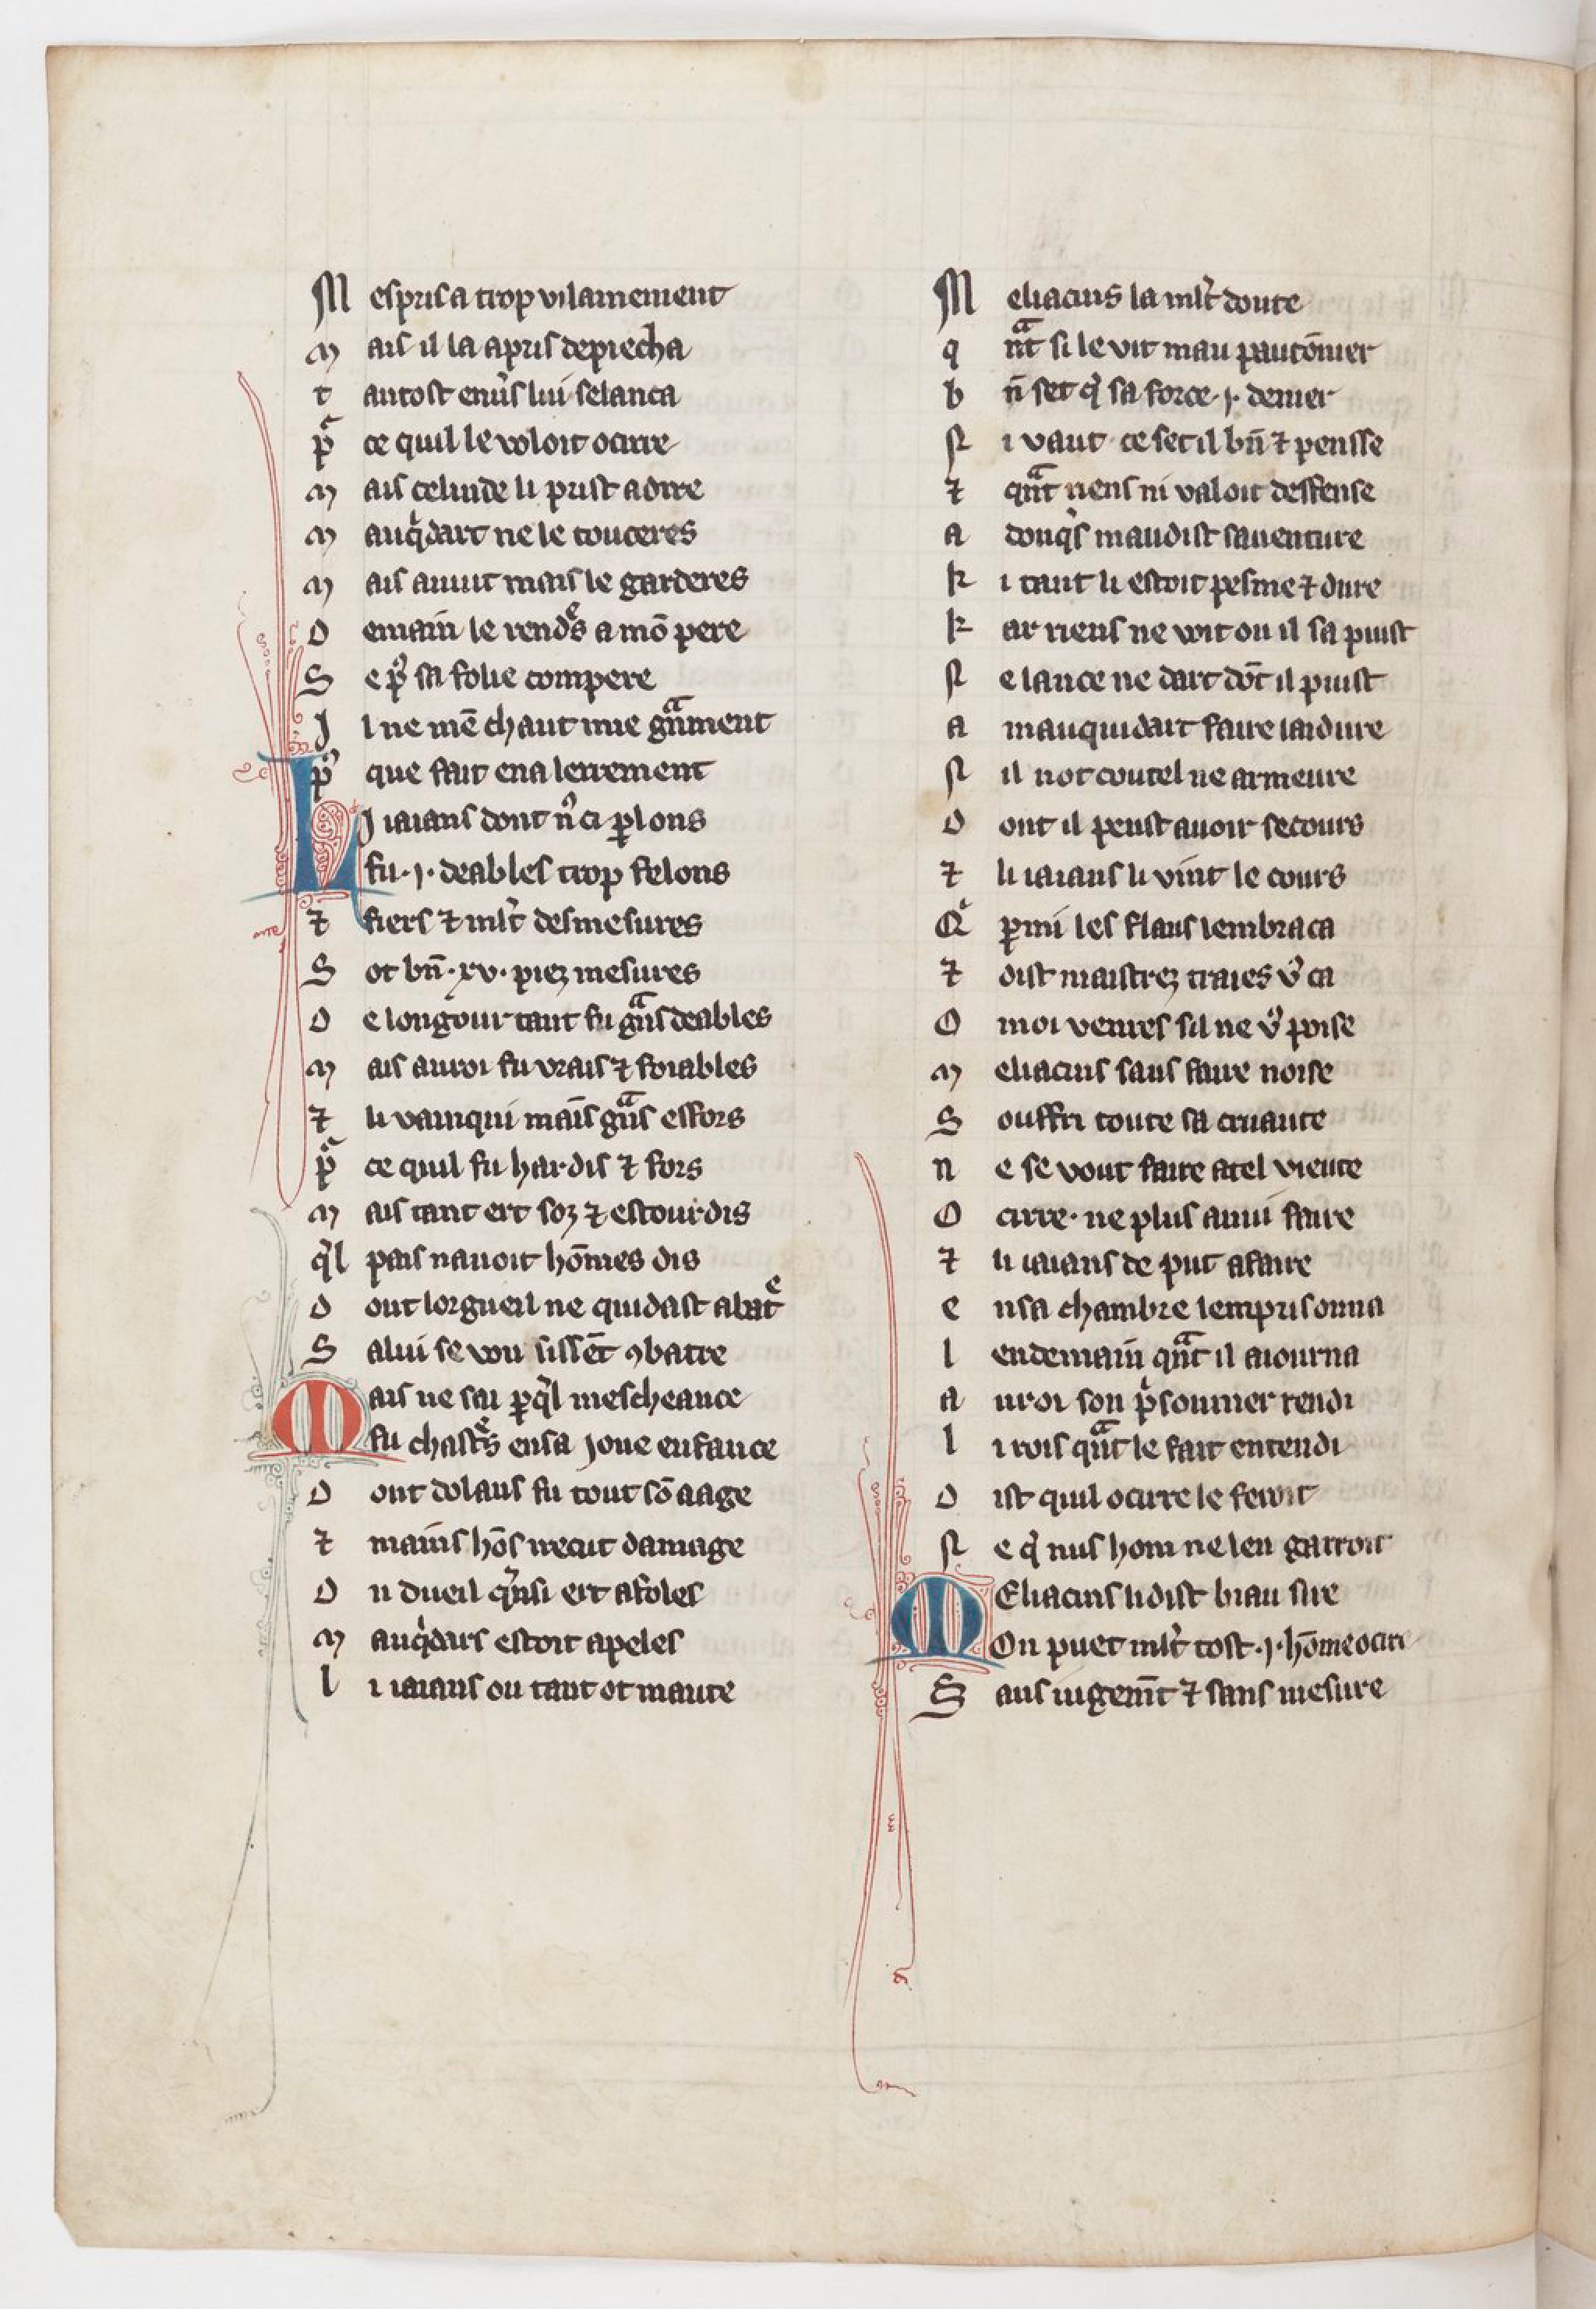 Mesprisa trop vilainement
mais il la apris depiecha
tantost enu̾s lui selanca
pͥ ce quil le voloit ocirre
mais celinde li prist a dire
mauq̍dart ne le touceres
mais anuit mais le garderes
Demain le rendeˢ a mõ pere
Se pꝰ sa folie compere
Il ne mẽ chaut mie gñᵃment
pꝰ que fait en a lerrement
LI iaians dont nꝰ ci ꝑlons
fu .j. deables trop felons
⁊ fiers ⁊ ml̃t desmesures
Sot bñ .xv. piez mesures
De longour tant fu gᵃñs deables
mais auroi fu vrais ⁊ foiables
⁊ li vainqui mais̃ gᵃñs effors
pͥ ce quil fu hardis ⁊ fors
mais tant ert soz ⁊ estourdis
q̍l pais nauoit hõmes dis
Dont lorgueil ne quidast abatᵉ
Sa lui se vou sissẽt ꝯbatre
Mais ne sai ꝑ q̍l mescheance
fu chastᵉs en sa joue enfance
Dont dolans fu tout sõ aage
⁊ mains hõs recut damage
Du dueil q̍nsi ert afoles
mauq̍dars estoit apeles
li iaians ou tant ot maute
Meliacins la ml̃t doute
qñᵃt si le vit mau pautõnier
bñ set q̍ sa force .j. denier
Ni vaut ce set il bñ ⁊ pensse
⁊ qñᵃt riens ni valoit deffense
adonq̍s maudist sauenture
ki tant li estoit pesme ⁊ dure
kar riens ne voit ou il sa puist
Ne lance ne dart dõt il puist
a mauquidart faire laidure
Nil not coutel ne armeure
Dont il peust auoir secours
⁊ li iaians li vint le cours
Qͥ ꝑmi les flans lembraca
⁊ dist maistrez traies vꝰ ca
O moi venres sil ne vꝰ poise
meliacins sans faire noise
Souffri toute sa cruaute
ne se vout faire a tel vieute
Ocirre. ne plus anui faire
⁊ li iaians de put afaire
en sa chambre lemprisonna
lendemain qñᵃt il aiourna
auroi son pͥsonnier rendi
li rois qñᵃt le fait entendi
Dist quil ocirre le feroit
Ne q̍ nus hom ne len garroit
MEliacins li dist biau sire
On puet ml̃t tost .j. hõme ocirr
Sans iugem̃t ⁊ sans mesure